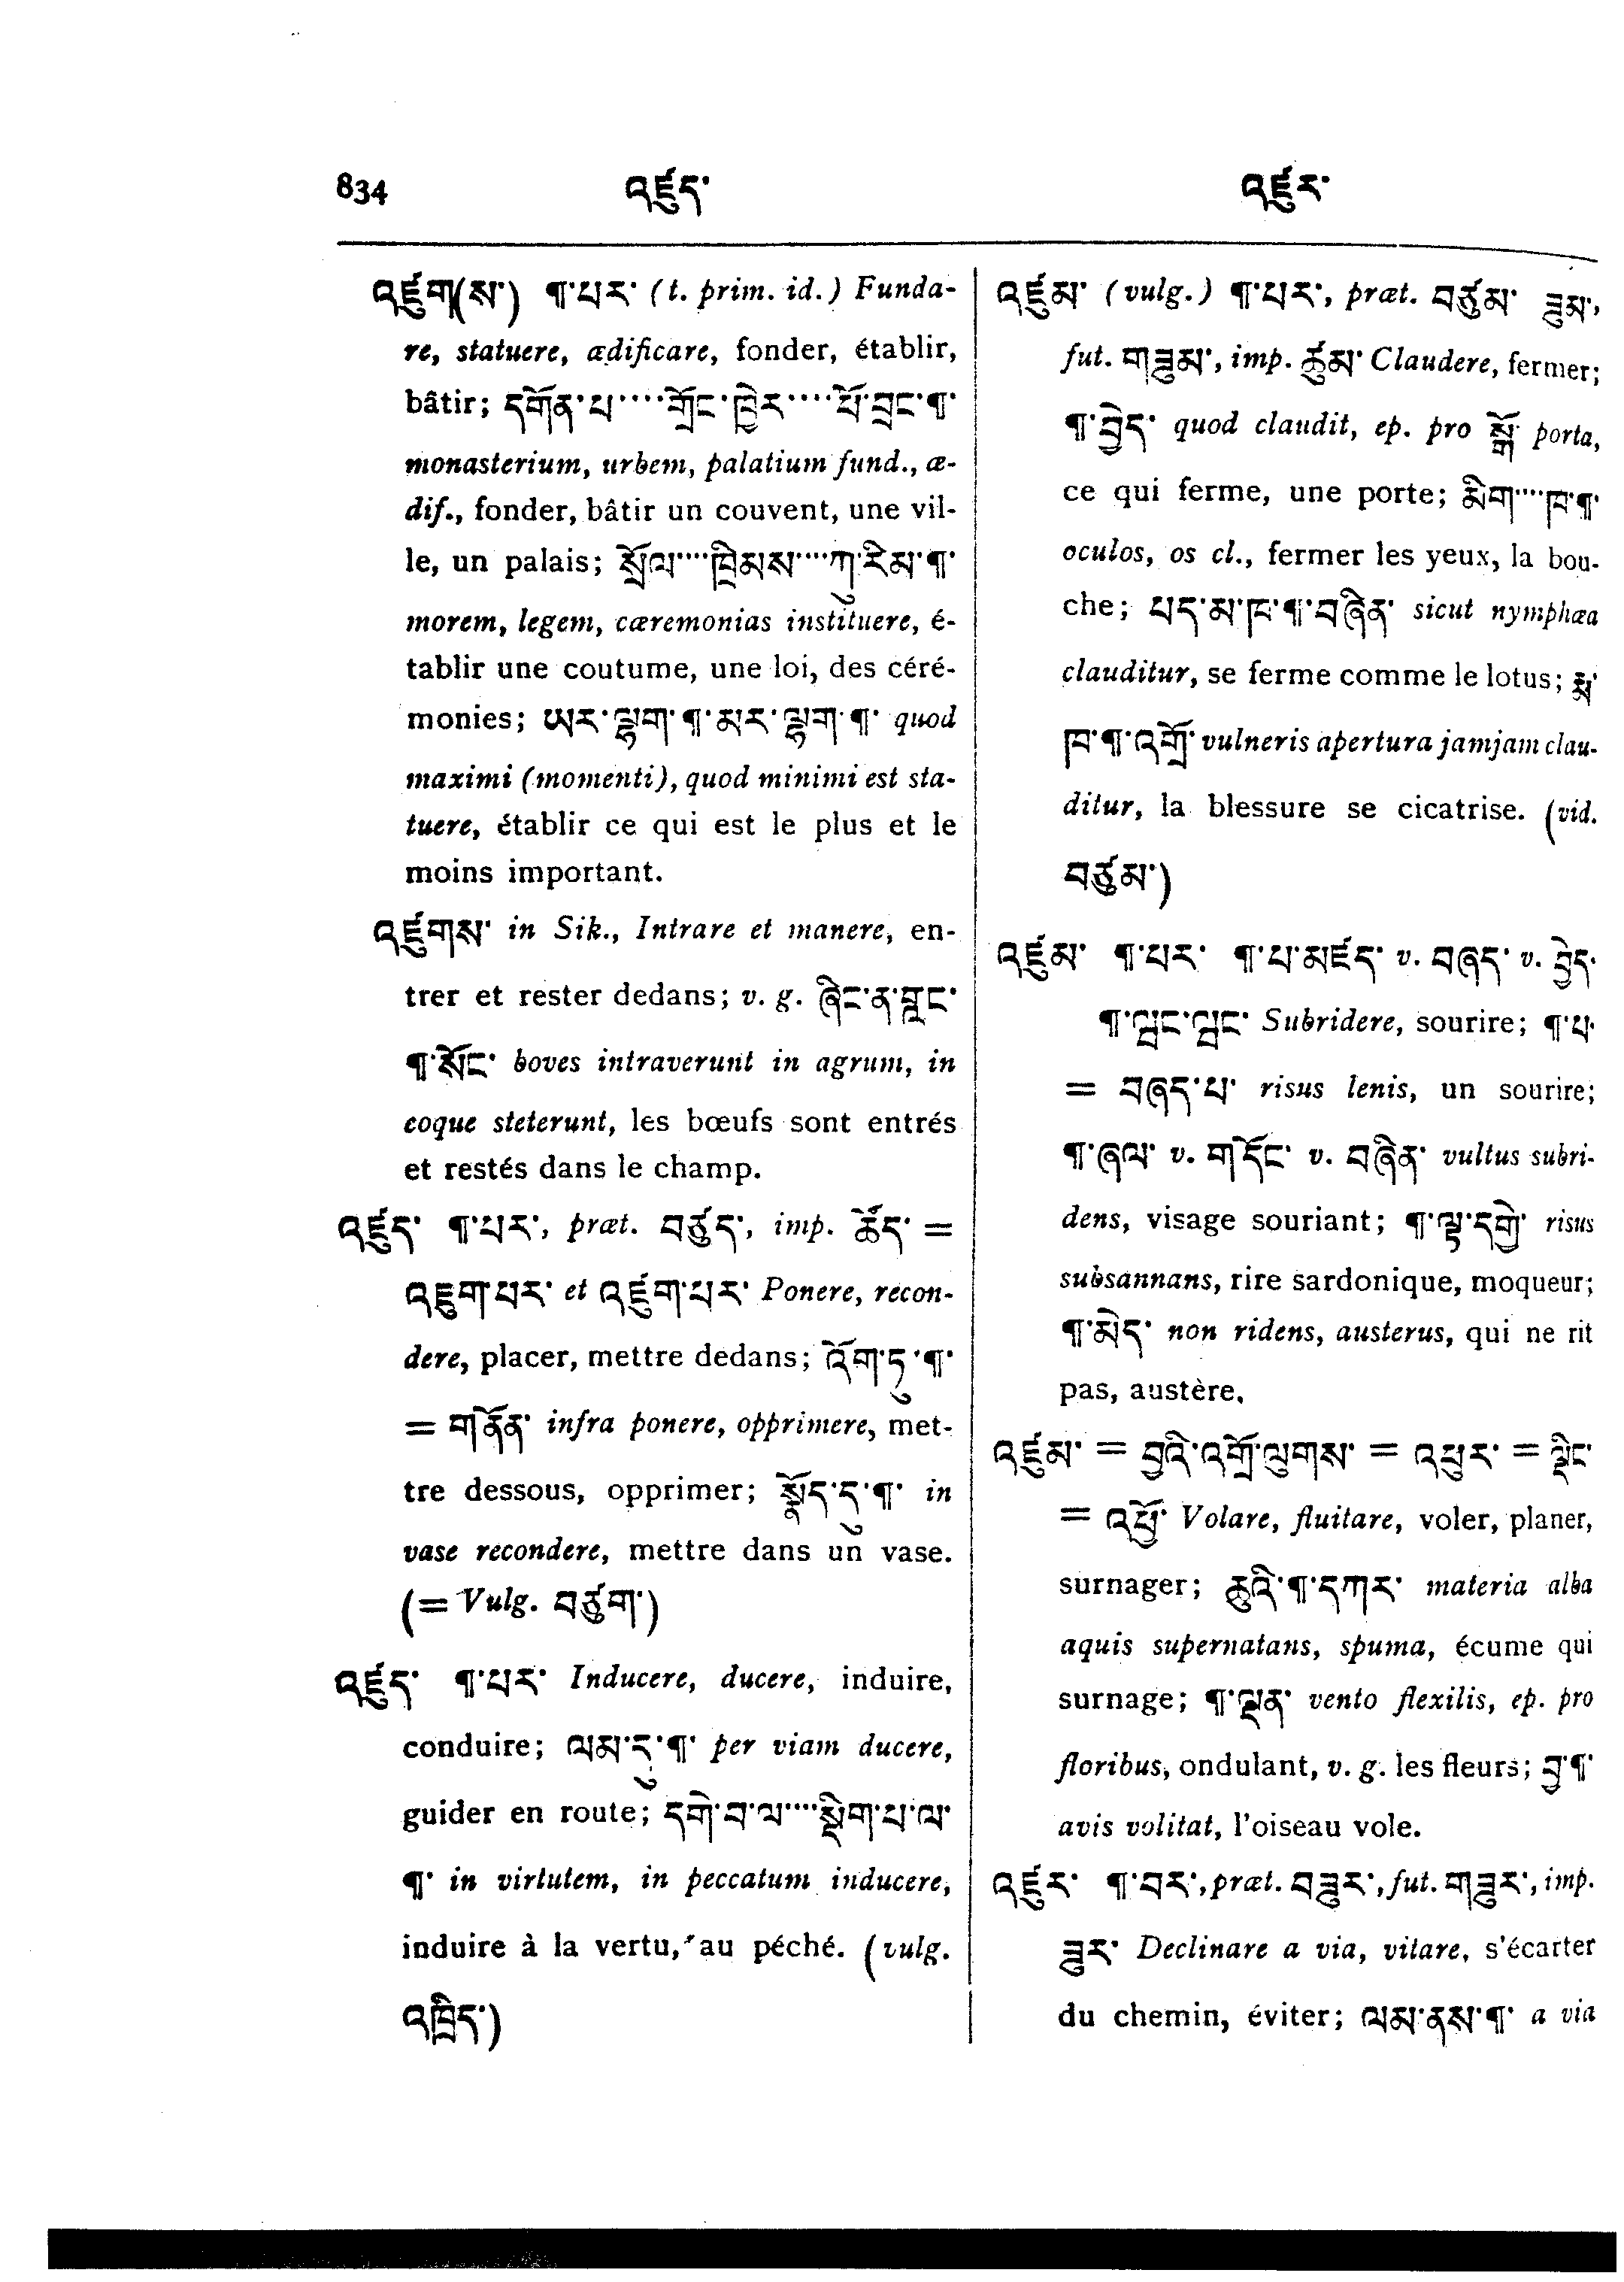 834 འཛུད་ འཛུར་
འཛུག(ས་) ¶་པར་ (t. prim. id.) Funda-
re, statuere, ædificare, fonder, établir,
bâtir; དགོན་པ་···གྲོང་ཁྱེར་···ཕོ་བྲང་¶་
monasterium, urbem, palatium fund., æ-
dif., fonder, bâtir un couvent, une vil-
le, un palais; སྲོལ་···ཁྲིམས་···ཀུ་རིམ་¶་
morem, legem, cæremonias instituere, é-
tablir une coutume, une loi, des céré-
monies; ཡར་ལྷག་¶་མར་ལྷག་¶་ quod
maximi (momenti), quod minimi est sta-
tuere, établir ce qui est le plus et le
moins important.
འཛུགས་ in Sik., Intrare et manere, en-
trer et rester dedans; v. g. ཞིང་ན་གླང་
¶་སོང་ boves intraverunt in agrum, in
eoque steterunt, les bœufs sont entrés
et restés dans le champ.
འཛུད་ ¶་པར་, præt. བཙུད་, imp. ཚོད་ =
འཇུག་པར་ et འཛུག་པར་ Ponere, recon-
dere, placer, mettre dedans; འོག་ཏུ་¶་
= གནོན་ infra ponere, opprimere, met-
tre dessous, opprimer; སྣོད་དུ་¶་ in
vase recondere, mettre dans un vase.
(= Vulg. བཙུག་)
འཛུད་ ¶་པར་ Inducere, ducere, induire,
conduire; ལམ་དུ་¶་ per viam ducere,
guider en route; དགེ་བ་ལ་···སྡིག་པ་ལ་
¶་ in virtutem, in peccatum inducere,
induire à la vertu, au péché. (vulg.
འཁྲིད་)
འཛུམ་ (vulg.) ¶་པར་, præt. བཙུམ་ ཟུམ་,
fut. གཟུམ་, imp. ཚུམ་ Claudere, fermer;
¶་བྱེད་ quod claudit, ep. pro སྒོ་ porta,
ce qui ferme, une porte; མིག་···ཁ་¶་
oculos, os cl., fermer les yeux, la bou-
che; པད་མ་ཁ་¶་བཞིན་ sicut nymphæa
clauditur, se ferme comme le lotus; རྨ་
ཁ་¶་འགྲོ་ vulneris apertura jamjam clau-
ditur, la blessure se cicatrise. (vid.
བཙུམ་)
འཛུམ་ ¶་པར་ ¶་པ་མཛད་ v. བཞད་ v. བྱེད་
¶་ལྦང་ལྦང་ Subridere, sourire; ¶་པ་
= བཞད་པ་ risus lenis, un sourire;
¶་ཞལ་ v. གདོང་ v. བཞིན་ vultus subri-
dens, visage souriant; ¶་ལྟ་དགྱེ་ risus
subsannans, rire sardonique, moqueur;
¶་མེད་ non ridens, austerus, qui ne rit
pas, austère.
འཛུམ་ = བྱའི་འགྲོ་ལུགས་ = འཕུར་ = ལྡིང་
= འཕྱོ་ Volare, fluitare, voler, planer,
surnager; ཆུའི་¶་དཀར་ materia alba
aquis supernatans, spuma, écume qui
surnage; ¶་ལྡན་ vento flexilis, ep. pro
floribus, ondulant, v. g. les fleurs; བྱ་¶་
avis volitat, l'oiseau vole.
འཛུར་ ¶་བར་, præt. བཟུར་, fut. གཟུར་, imp.
ཟུར་ Declinare a via, vitare, s'écarter
du chemin, éviter; ལམ་ནས་¶་ a via